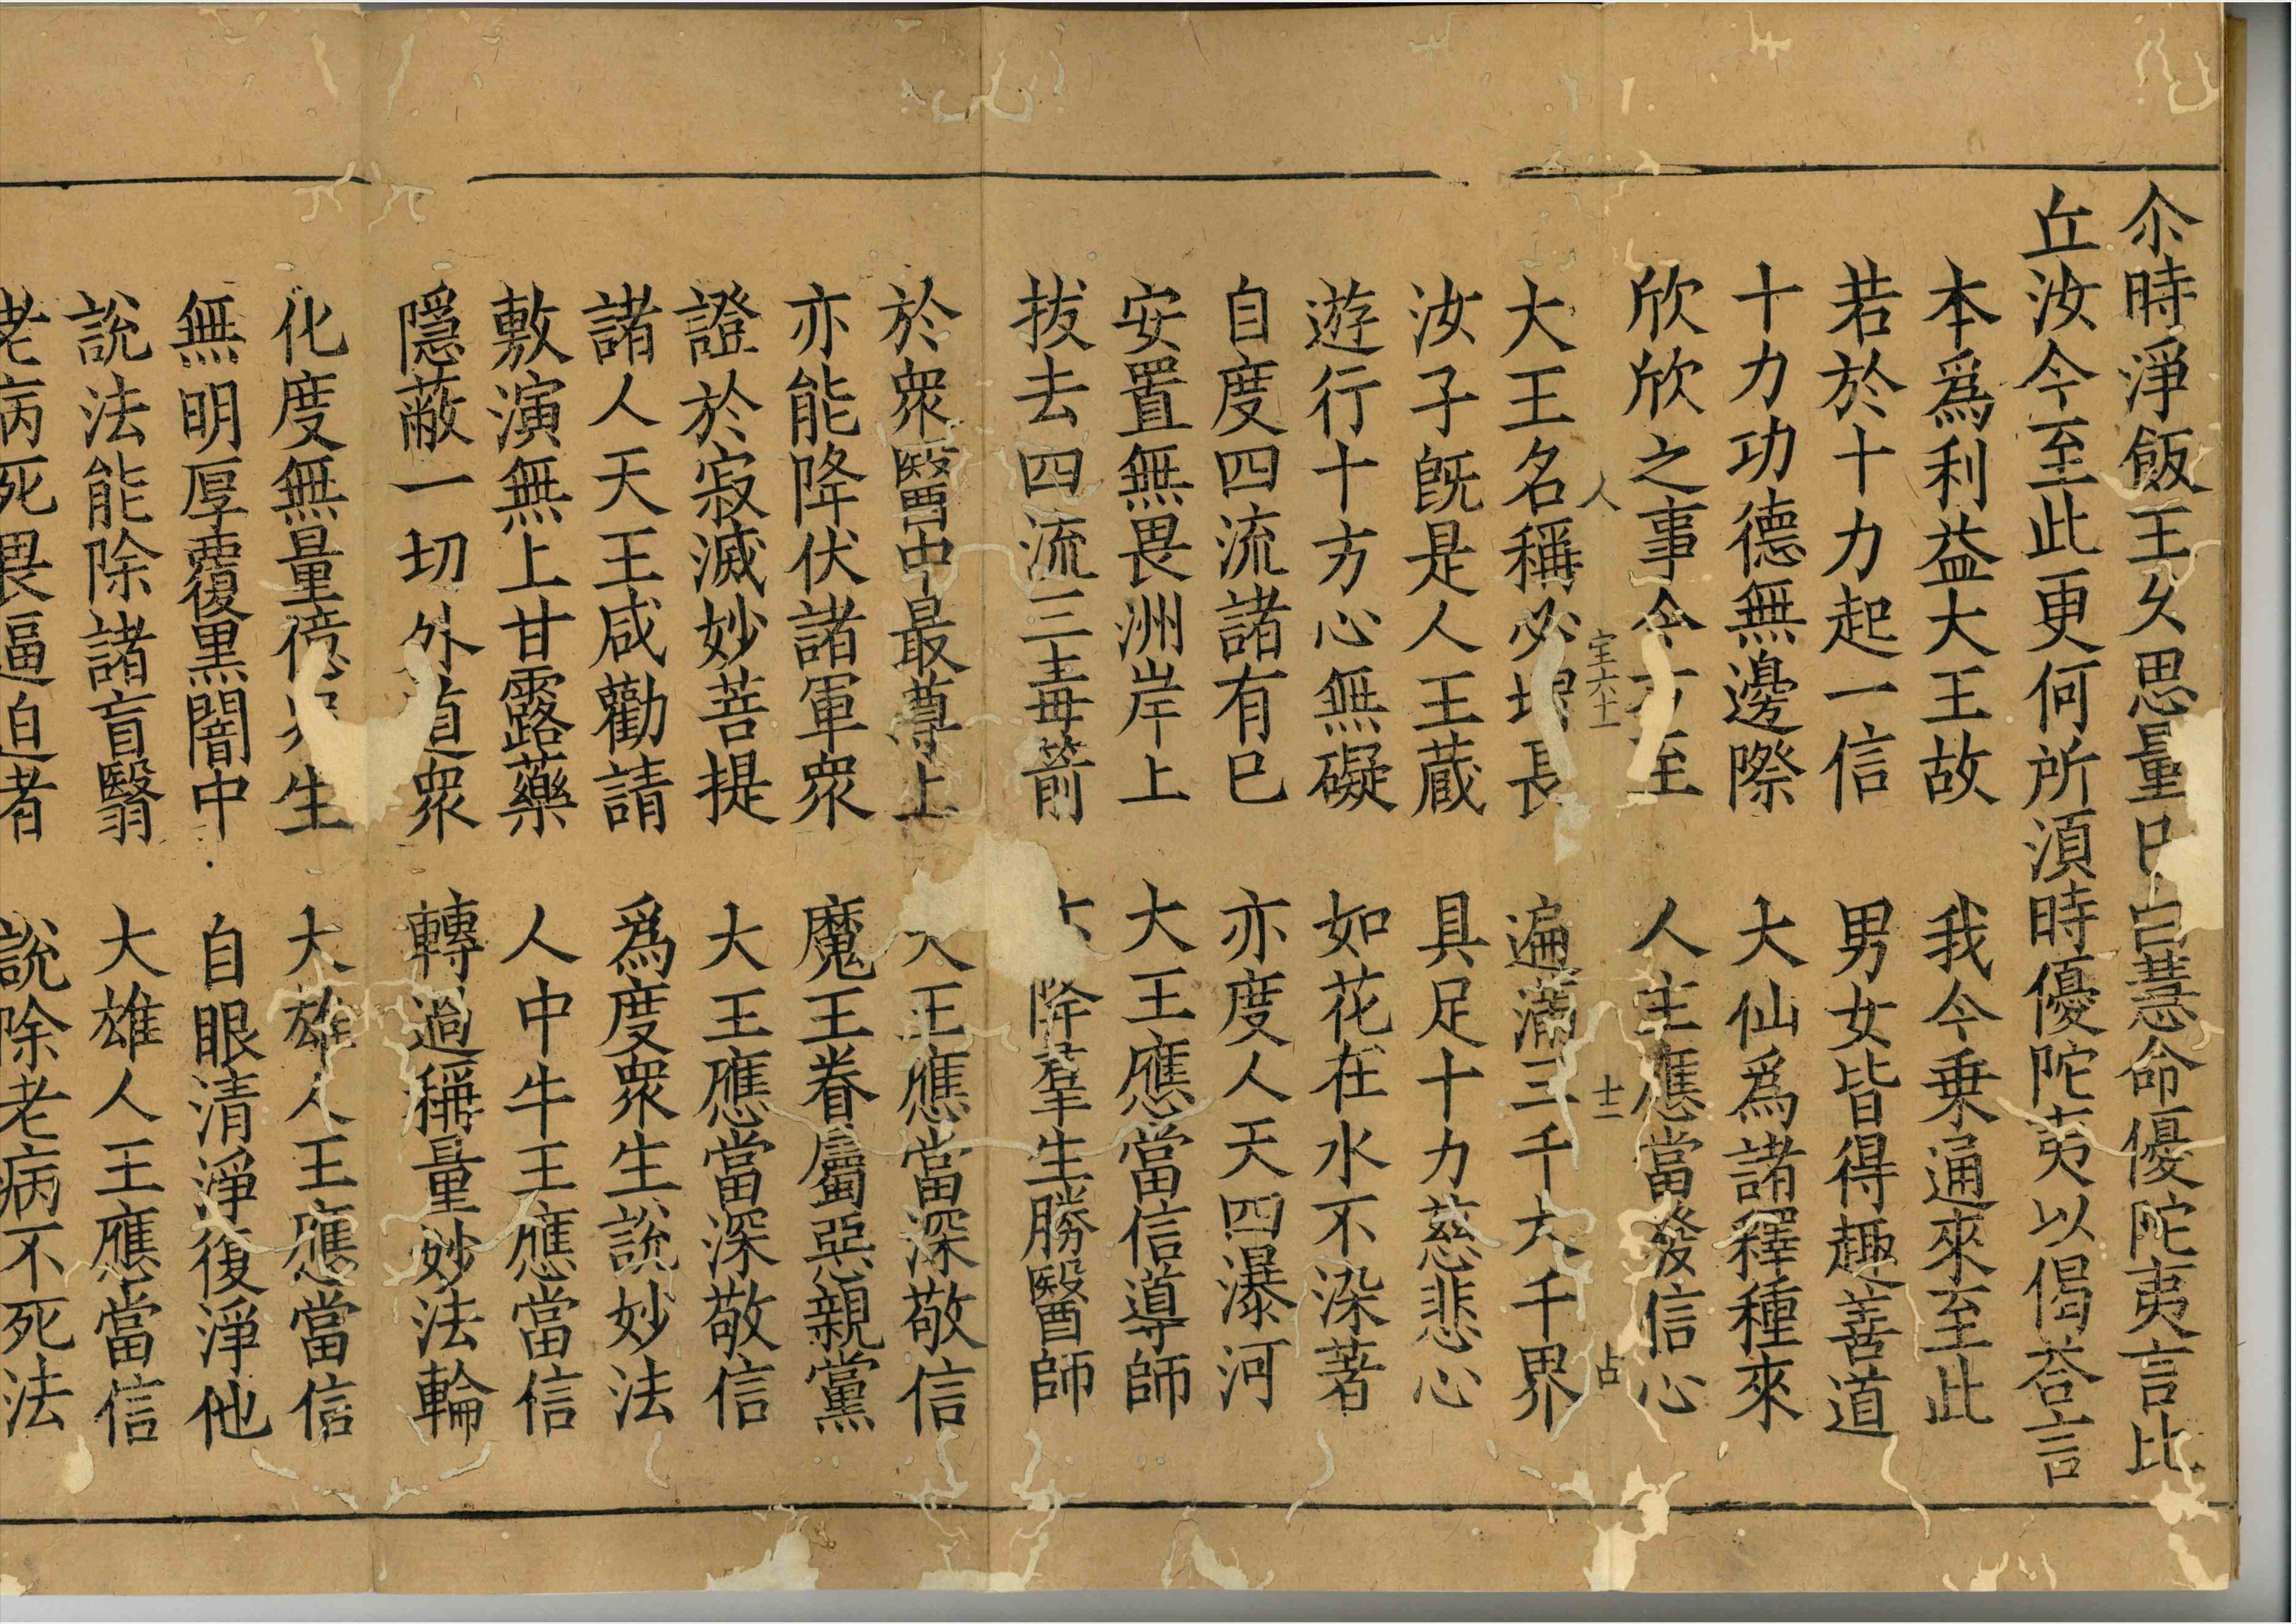 尒時淨飯王久思量已白慧命優陀夷言比
丘汝今至此更何所湏時優陀夷以偈荅言
本爲利益大王故 我今乗通來至此
若於十力起一信 男女皆得趣善道
十力功德無邊際 大仙爲諸釋種來
欣欣之事今方至 人主應當發信心
人 士二 占
大王名稱必増長 遍滿三千大千界
汝子旣是人王蔵 具足十力慈悲心
遊行十方心無礙 如花在水不染著
自度四流諸有已 亦度人天四瀑河
安置無畏洲岸上 大王應當信導師
拔去四流三毒箭 除羣生勝醫師
於衆醫中最尊上 大王應當深敬信
亦能降伏諸軍衆 魔王眷屬惡親黨
證於寂滅妙菩提 大王應當深敬信
諸人天王咸勸請 爲度衆生說妙法
敷演無上甘露藥 人中牛王應當信
隱蔽一切外道衆 轉過稱量妙法輪
化度無量億衆生 大雄人王應當信
無明厚覆黒闇中 自眼清淨復淨他
說法能除諸盲翳 大雄人王應當信
老病死畏逼迫者 說除老病不死法